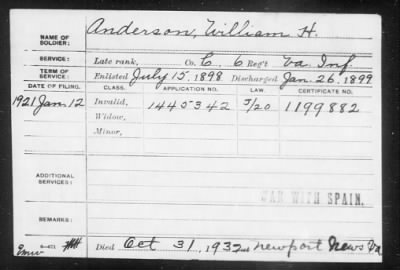 NAME OF SOLDIER: Anderson, William H.
SERVICE: Late rank, Co. C, 6 Reg't Va. Inf.
TERM OF SERVICE: Enlisted July 15, 1898 Discharged Jan. 26, 1899
DATE OF FILING. CLASS. APPLICATION NO. LAW. CERTIFICATE NO.
1921 Jan. 12 Invalid, 1445342 5/20 1199882
Widow,
Minor,
ADDITIONAL SERVICES:
WAR WITH SPAIN.
REMARKS:
Died Oct 31, 1932 at Newport News Va